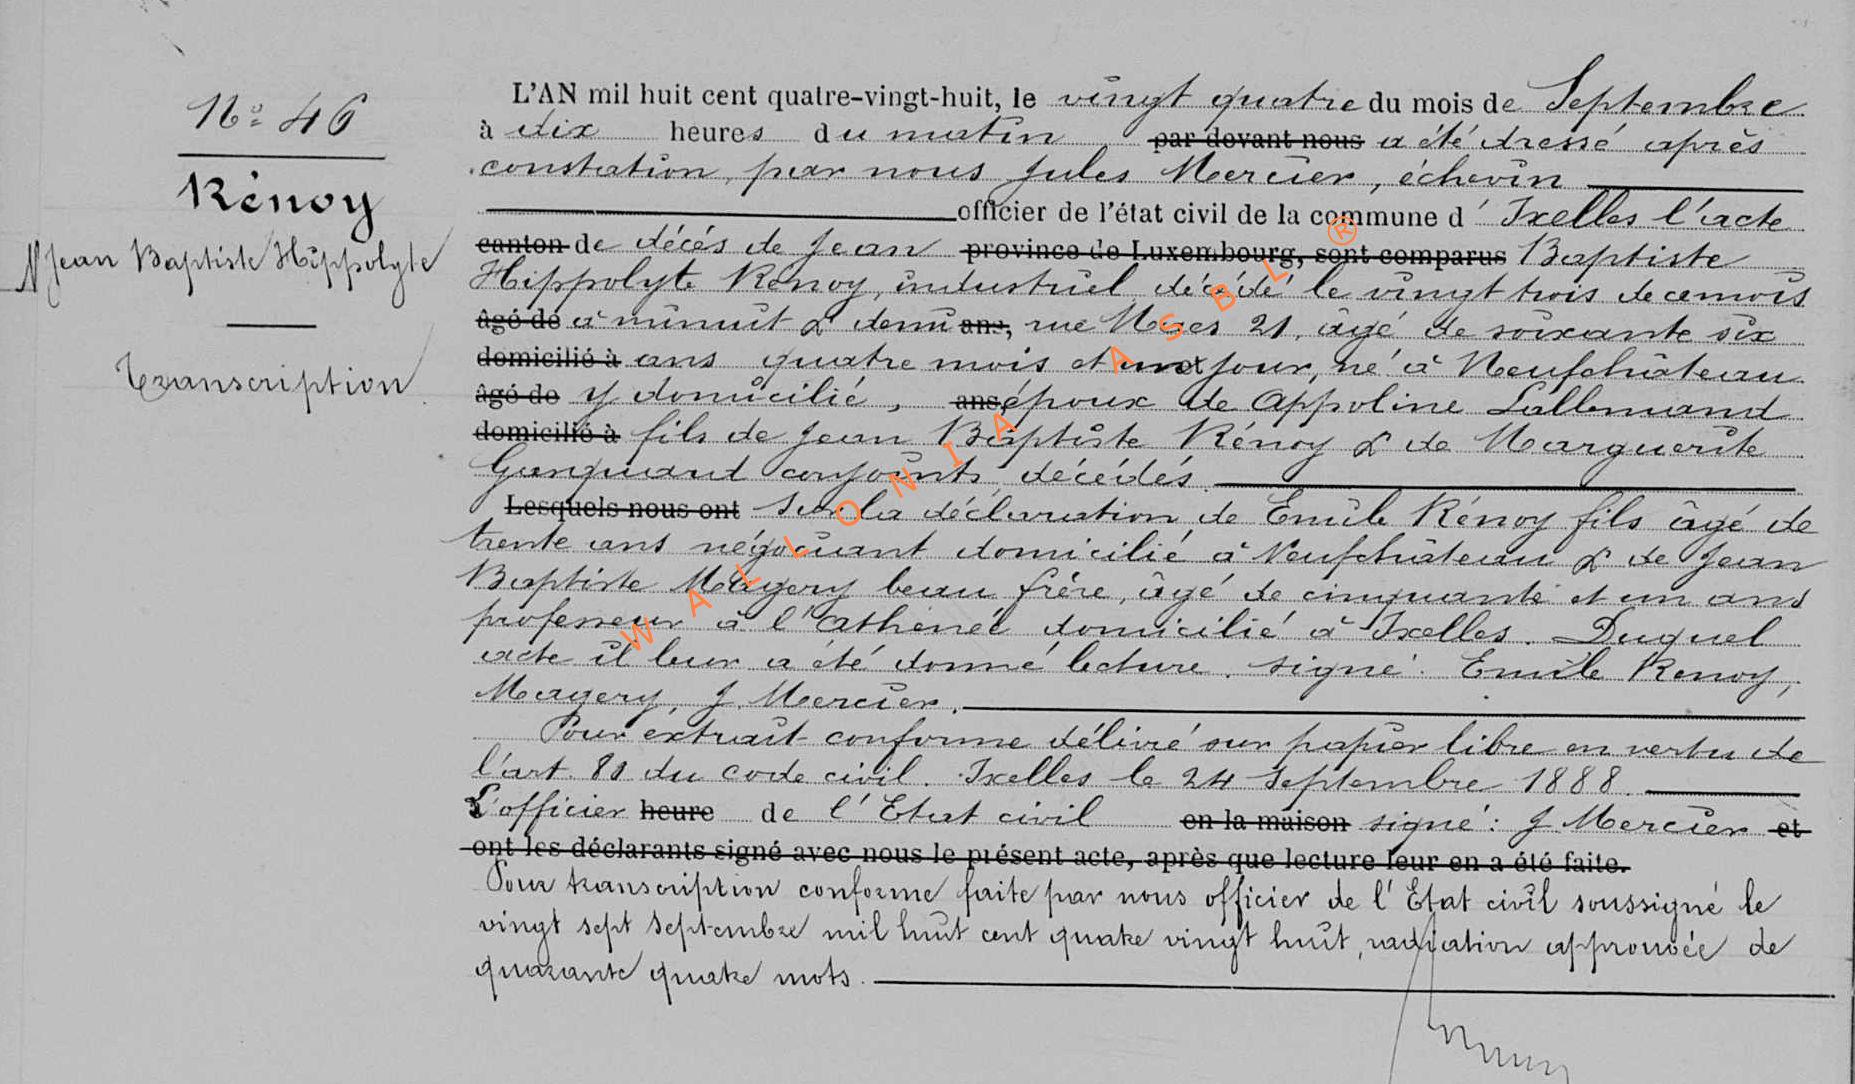 Nº 46
Rénoy
Jean Baptiste Hippolyte
Transcription
L'AN mil huit cent quatre-vingt-huit, le vingt quatre du mois de Septembre
à dix heures du matin par devant nous a été dressé après
constation, par nous Jules Mercier, échevin
officier de l'état civil de la commune d'Ixelles l'acte
canton de décés de Jean province de Luxembourg, sont comparus Baptiste
Hippolyte Rénoy, industriel, décédé le vingt trois de ce mois
âgé de à minuit & demi ans, rue 21, âgé de soixante six
domicilié à ans quatre mois et jour, né à Neufchâteau
âgé de y domicilié, ans époux de Appoline Lallemand
domicilié à fils de Jean Baptiste Rénoy & de Marguerite
conjoints décédés.
Lesquels nous ont Sur la déclaration de Emile Rénoy fils âgé de
trente ans négociant domicilié à Neufchâteau & de Jean
Baptiste Magery beau frère, âgé de cinquante et un ans
professeur à l'athénée domicilié à Ixelles. Duquel
acte il leur a été donné lecture. signé: Emile Renoy,
Magery, J. Mercier.
Pour extrait conforme délivré sur papier libre en vertu de
l'art. 80 du code civil. Ixelles le 24 Septembre 1888.
L'officier heure de l'Etat civil en la maison signé: J Mercier et
ont les déclarants signé avec nous le présent acte, après que lecture leur en a été faite.
Pour transcription conforme faite par nous officier de l'Etat civil soussigné le
vingt sept Septembre mil huit cent quatre vingt huit, radiation approuvée de
quarante quatre mots.
WALLONIA ASBL ®